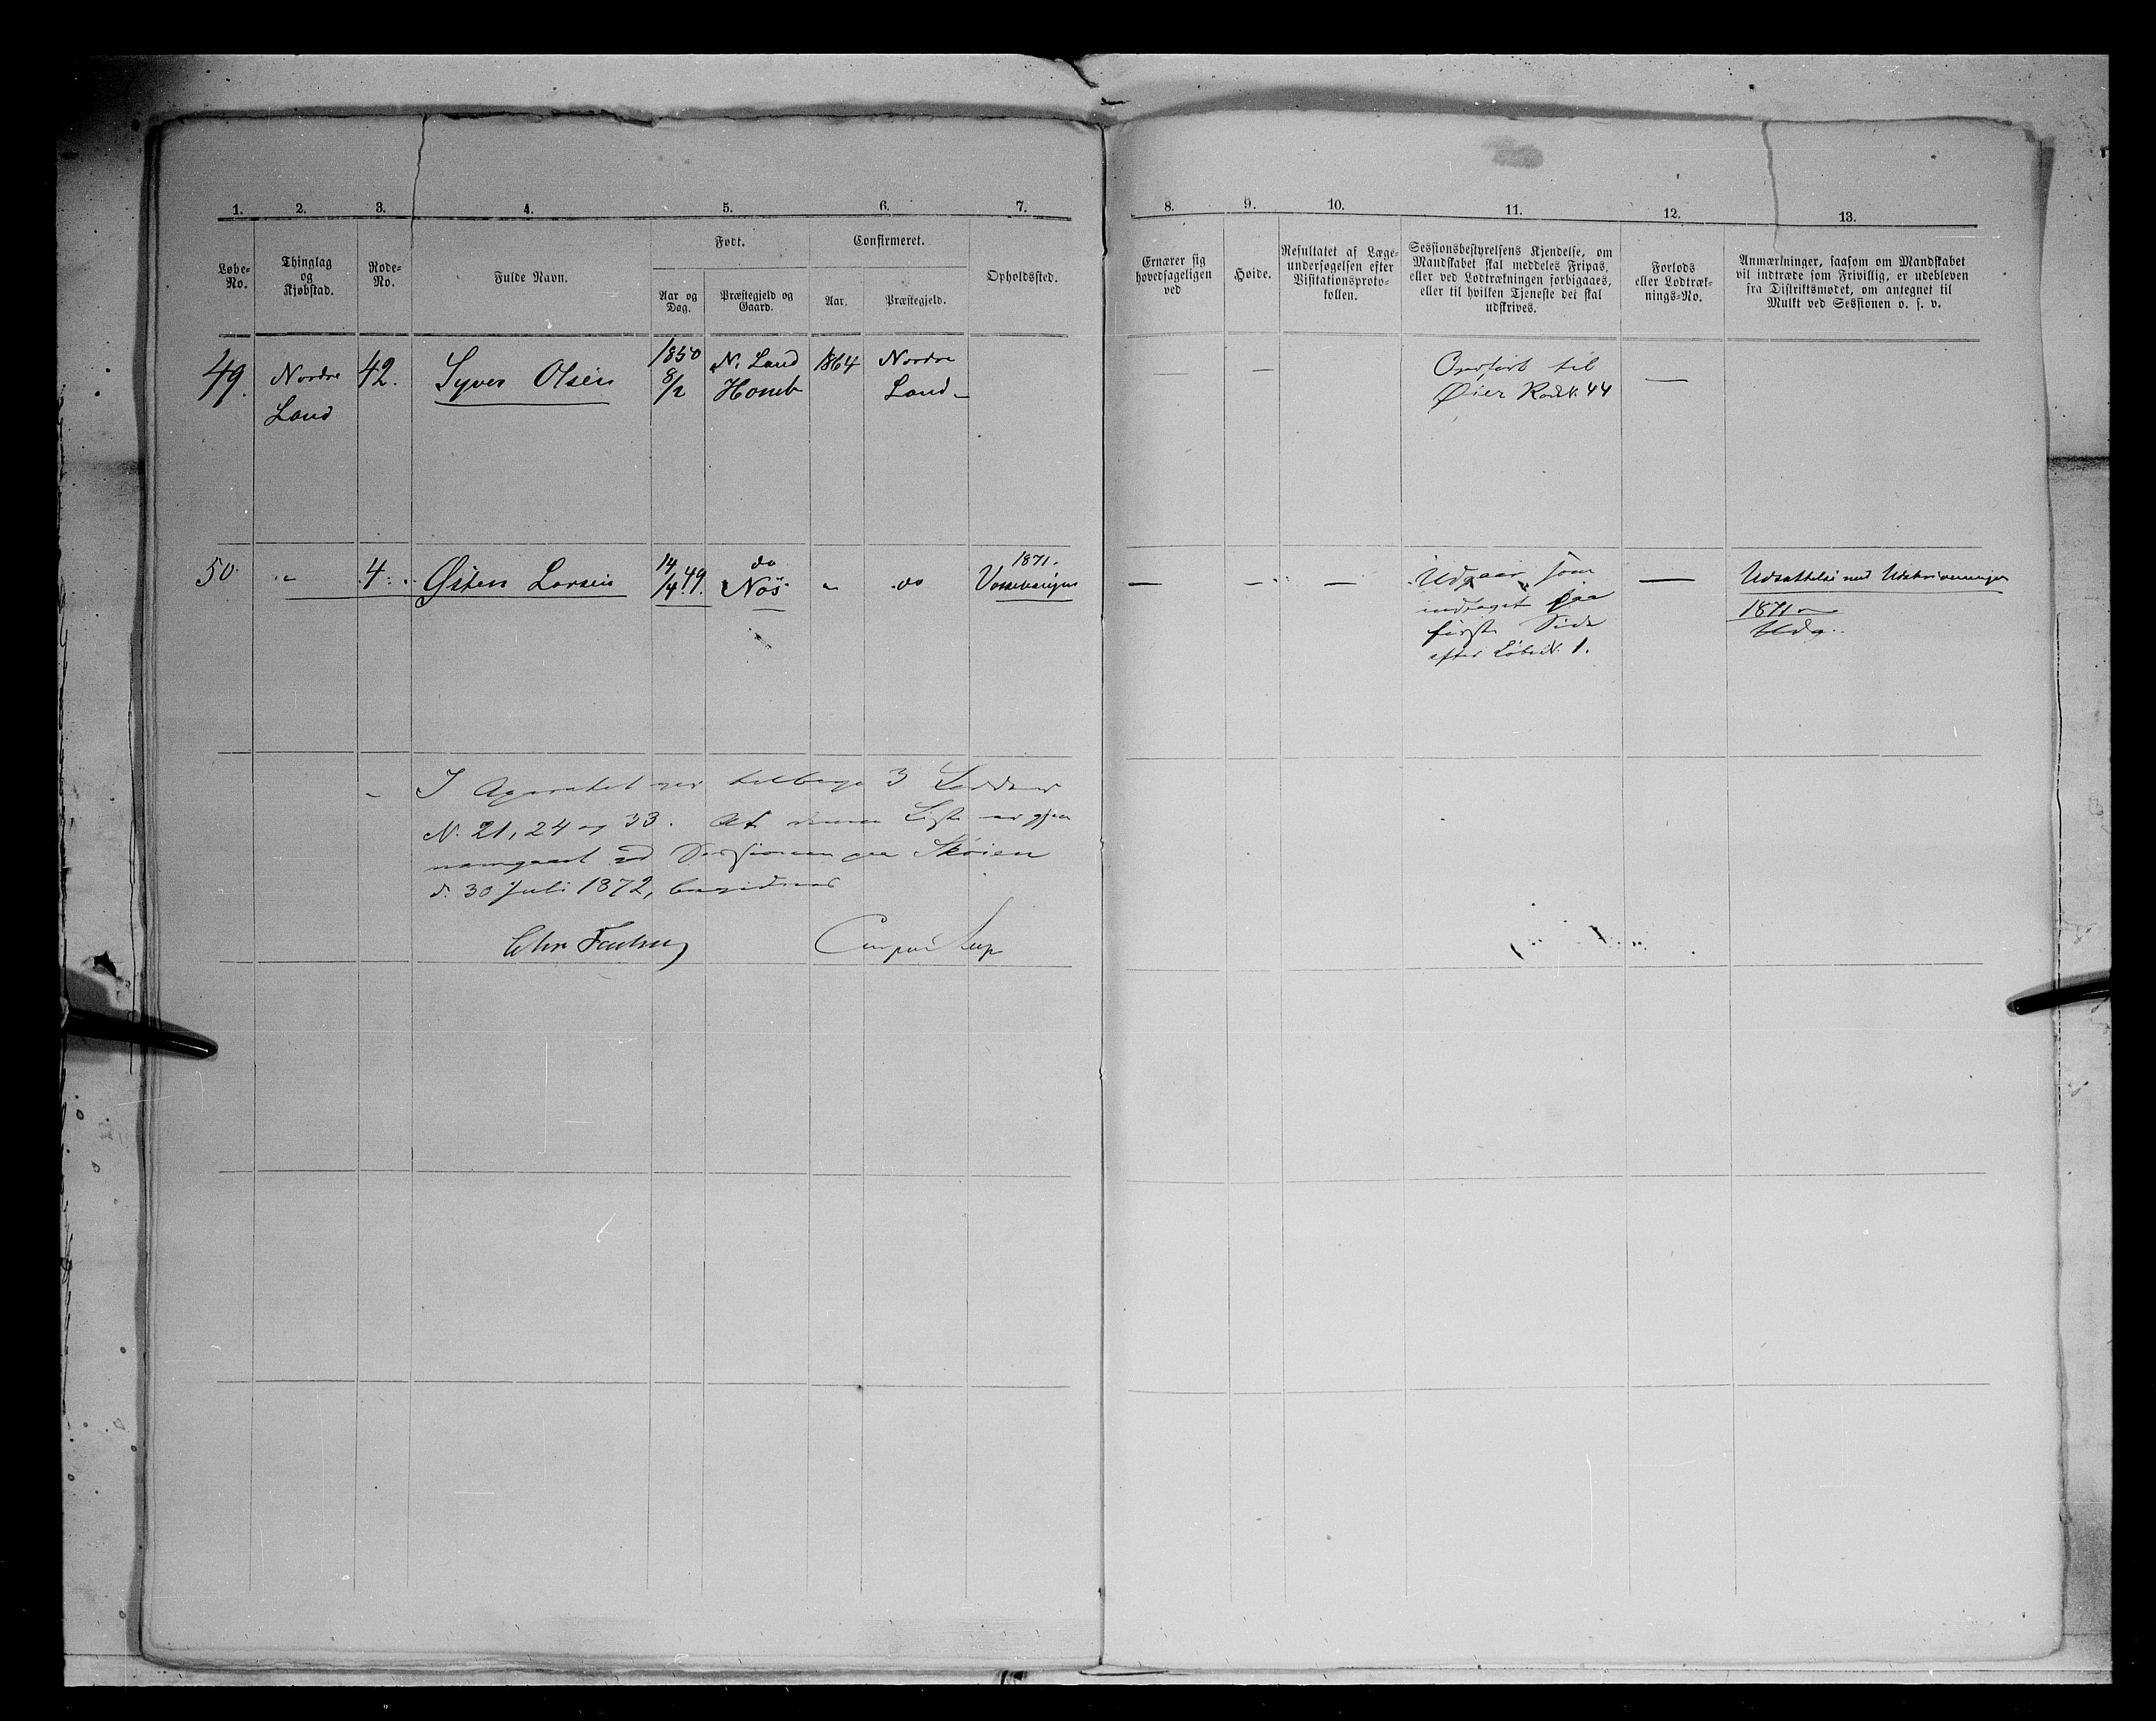 1. 2. 3. 4. 5. 6. 7.
Løbe-No. Thinglag og Kjøbstad. Rode-No. Fulde Navn. Født. Aar og Dag. Præstegjeld og Gaard. Confirmeret. Aar. Præstegjeld. Opholdssted.
49. Nordre 42. Syver Olsen 1850 N. Land 1864 Nordre
Land 8/2 Homb Land
50 " 4. Østen Larsen 14/4 49. do Nøs " do 1871.
I tilbage 3 Lodder
N. 21, 24 og 33. At denne Liste er gjen
nemgaaet ved Sessionen paa Skøien
d. 30 Juli 1872, bevidnes
8. 9. 10. 11. 12. 13.
Ernærer sig hovedsageligen ved
Høide.
Resultatet af Læge-undersøgelsen efter Visitationsproto-kollen.
Sessionsbestyrelsens Kjendelse, om Mandskabet skal meddeles Fripas, eller ved Lodtrækningen forbigaaes, eller til hvilken Tjeneste det skal udskrives.
Forlods eller Lodtræk-nings-No.
Anmærkninger, saasom om Mandskabet vil indtræde som Frivillig, er udebleven fra Distriktsmødet, om antegnet til Mulkt ved Sessionen o. s. v.
— — Overført til —
Øier RodeN. 44
— — — Udgaar som — Udsættelse ved Udskrivningen
indtaget paa 1871
første Side Udg.
efter LøbeN. 1.